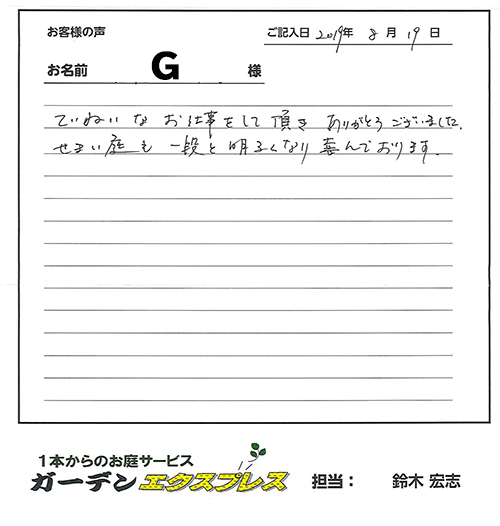 お客様の声
ご記入日 2019年 8月 19日
お名前 G 様
ていねいな お仕事をして頂き ありがとうございました。
せまい庭も 一段と 明るくなり 喜んでおります。
1本からのお庭サービス
ガーデンエクスプレス 担当： 鈴木 宏志